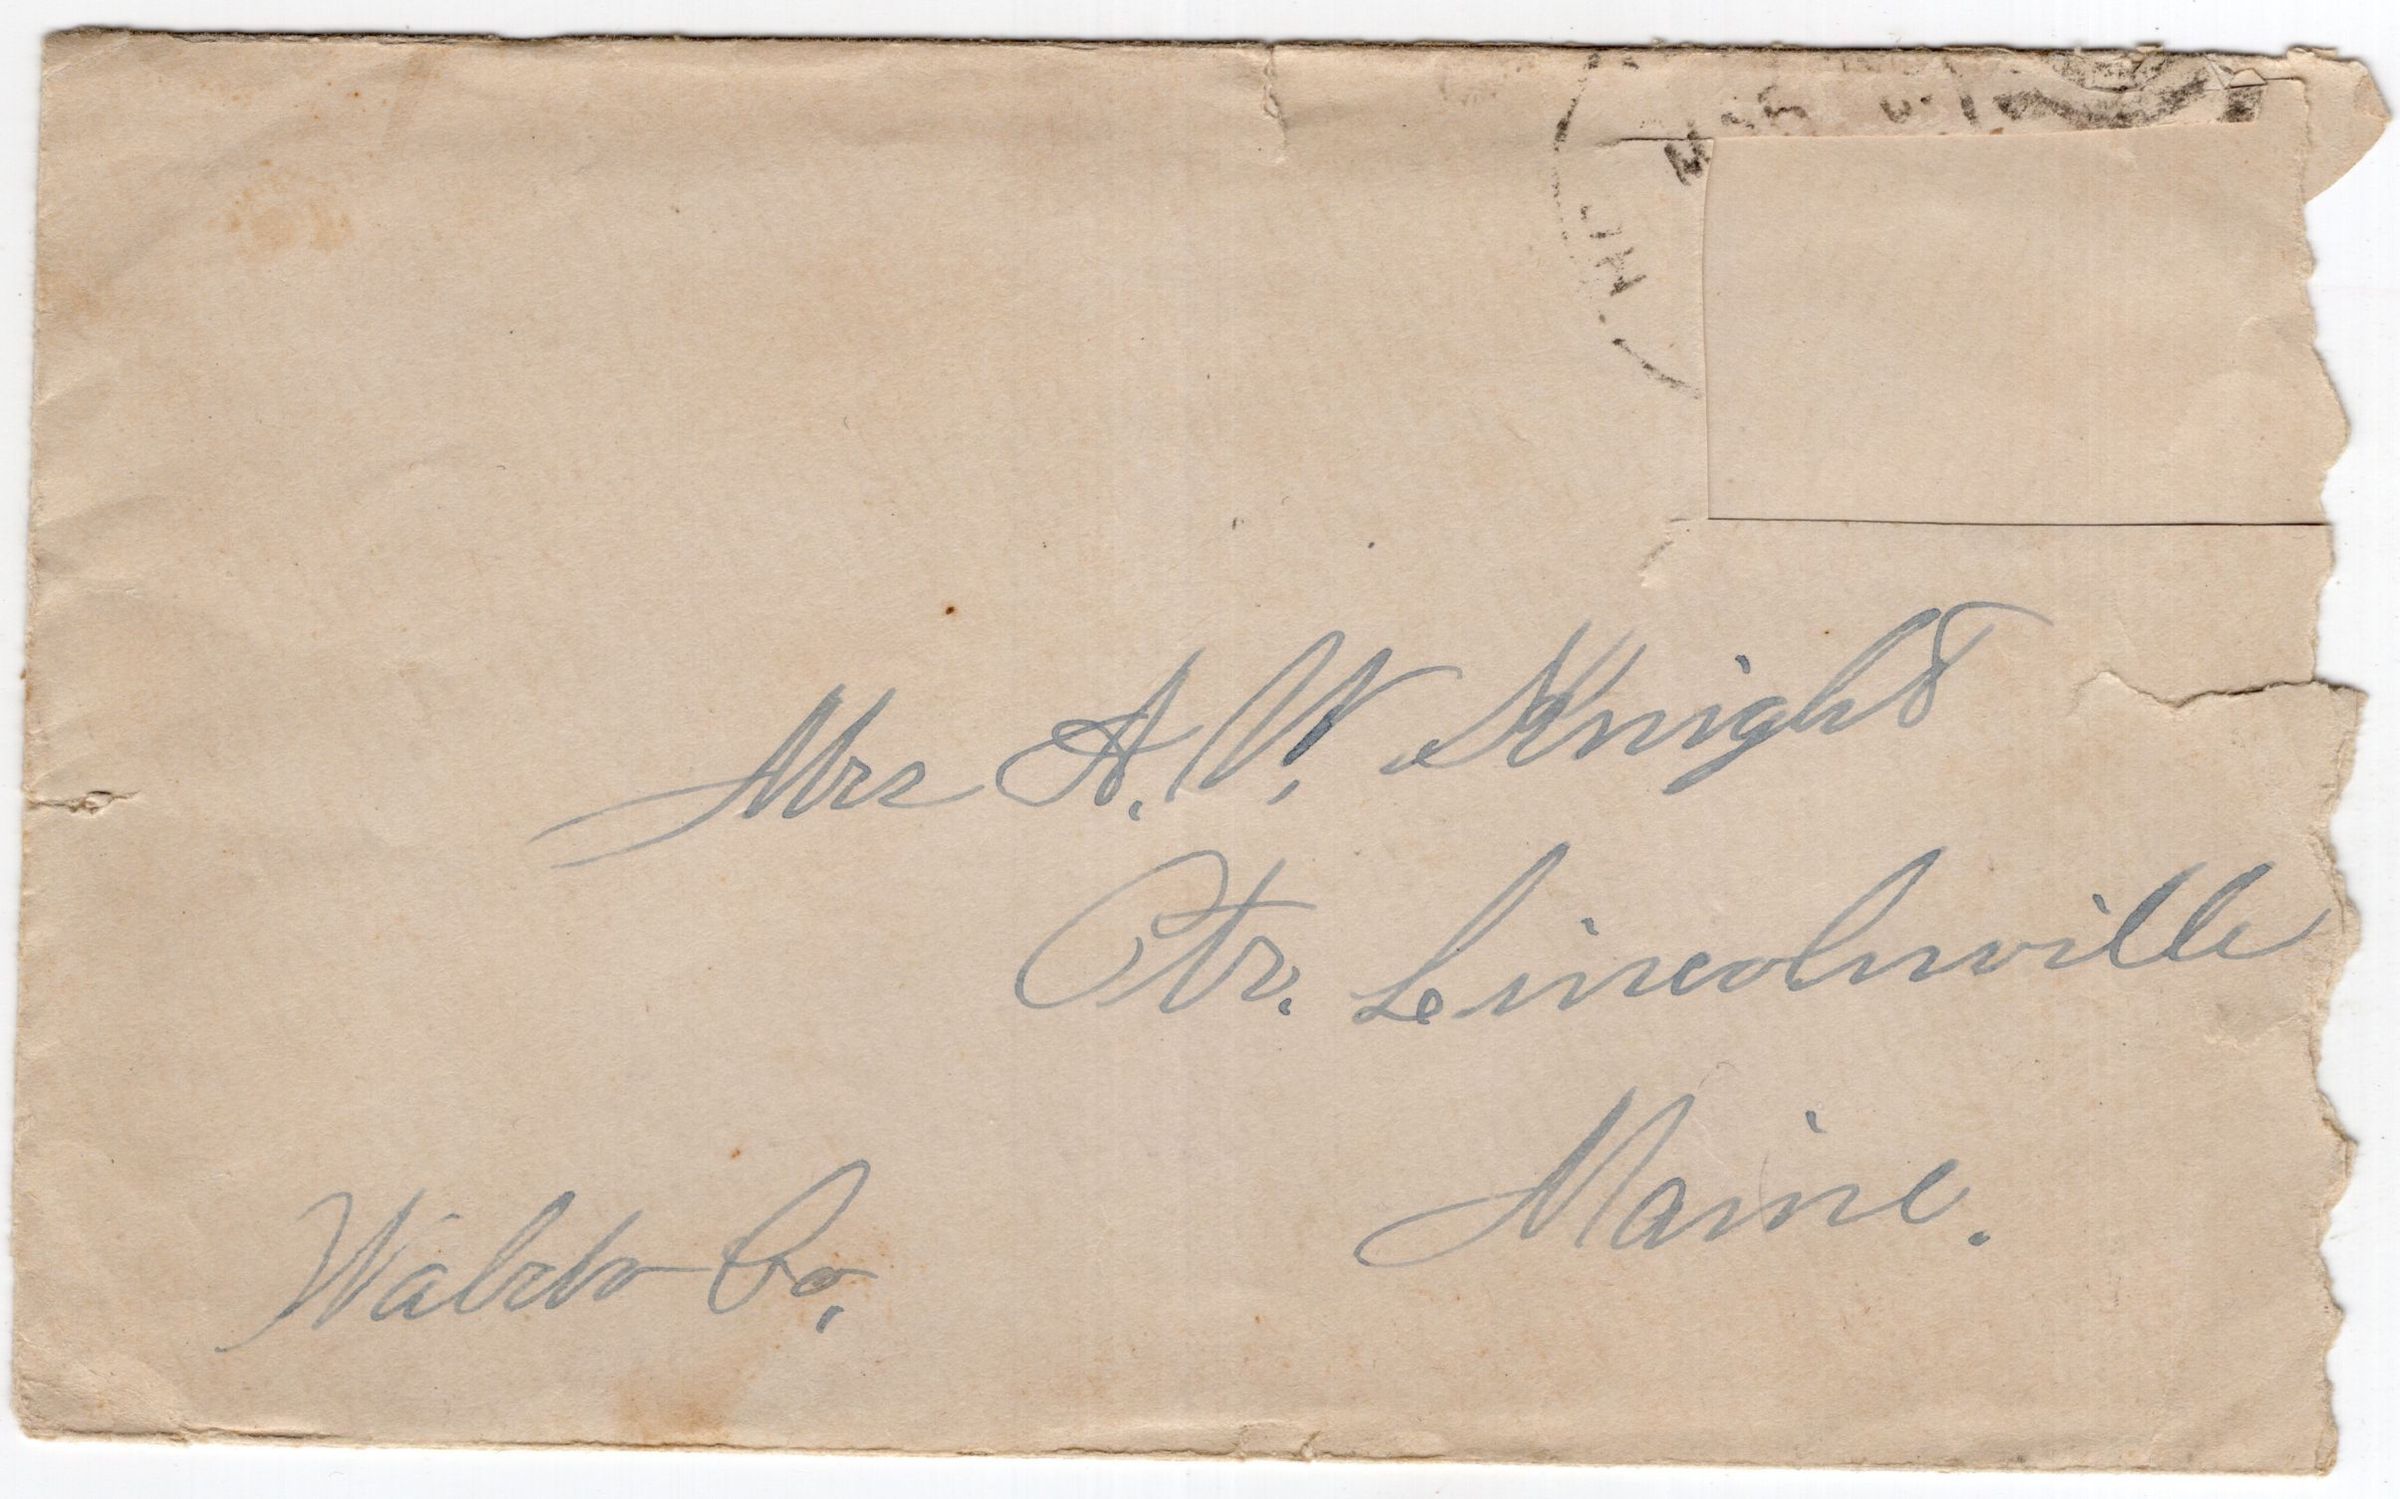 Mrs A. W. Knight
Ctr. Lincolnville
Maine.
Waldo Co.